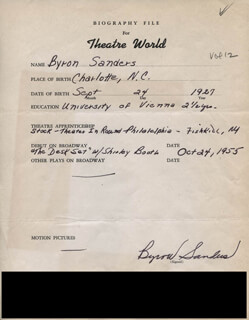 BIOGRAPHY FILE
For
Theatre World
Vol 12
NAME Byron Sanders
PLACE OF BIRTH Charlotte, N.C.
DATE OF BIRTH Sept 24 1927
Month Day Year
EDUCATION University of Vienna 2½ yrs.
THEATRE APPRENTICESHIP
Stock - Theatre In Round Philadelphia - Fishkill, NY
DEBUT ON BROADWAY
"The Desk Set" w/ Shirley Booth Oct 24, 1955
OTHER PLAYS ON BROADWAY
MOTION PICTURES
Byron Sanders
(Signed)